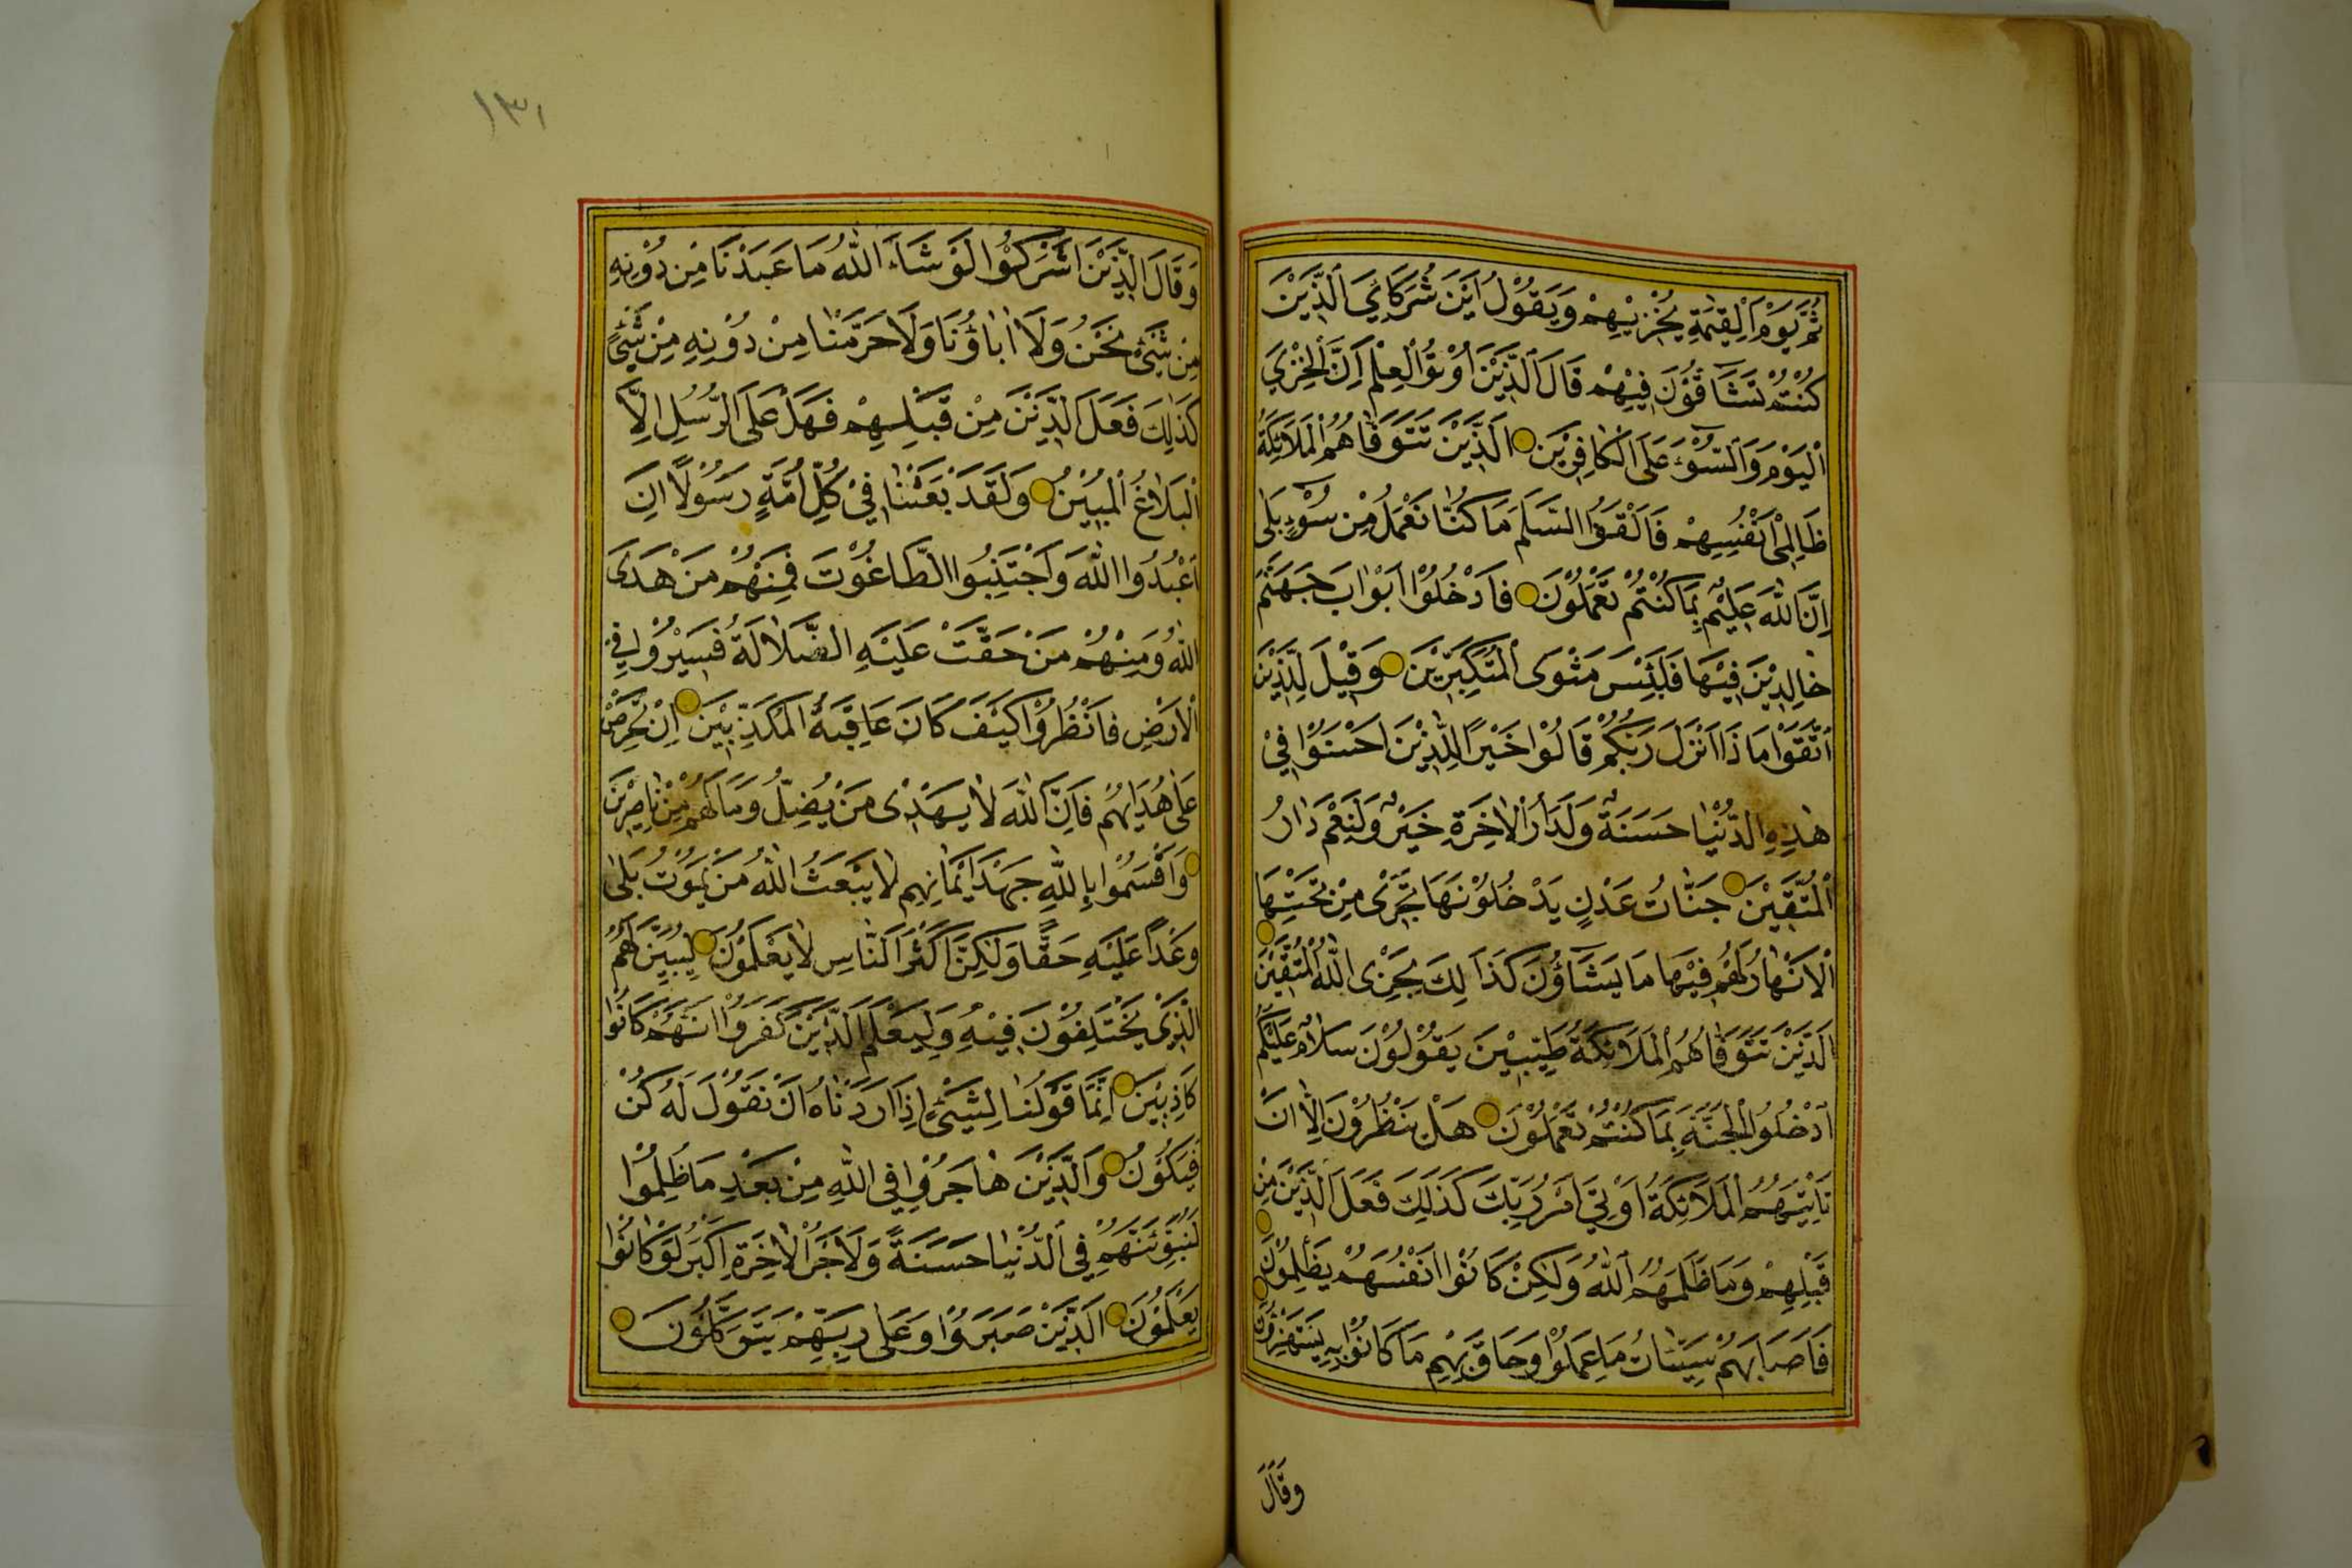 ثُمَّ يَوْمَ الْقِيٰمَةِ يُخْزِيْهِمْ وَيَقُوْلُ اَيْنَ شُرَكَائِيَ الَّذِيْنَ
كُنْتُمْ تُشَآقُّوْنَ فِيْهِمْ قَالَ الَّذِيْنَ اُوْتُوا الْعِلْمَ اِنَّ الْخِزْيَ
الْيَوْمَ وَالسُّوْٓءَ عَلَى الْكَافِرِيْنَ اَلَّذِيْنَ تَتَوَفّٰاهُمُ الْمَلَائِكَةُ
ظَالِمِى اَنْفُسِهِمْ فَاَلْقَوُا السَّلَمَ مَا كُنَّا نَعْمَلُ مِنْ سُوْٓءٍ بَلٰى
اِنَّ اللّٰهَ عَلِيْمٌ بِمَا كُنْتُمْ تَعْمَلُوْنَ فَادْخُلُوْا اَبْوَابَ جَهَنَّمَ
خٰالِدِيْنَ فِيْهَا فَلَبِئْسَ مَثْوَى الْمُتَكَبِّرِيْنَ وَقِيْلَ لِلَّذِيْنَ
اتَّقَوْا مَا ذَا اَنْزَلَ رَبُّكُمْ قَالُوْا خَيْرًا لِلَّذِيْنَ اَحْسَنُوْا فِيْ
هٰذِهِ الدُّنْيٰا حَسَنَةٌ وَلَدَارُ الْاٰخِرَةِ خَيْرٌ وَلَنِعْمَ دَارُ
الْمُتَّقِيْنَ جَنَّاتُ عَدْنٍ يَدْخُلُوْنَهَا تَجْرِىْ مِنْ تَحْتِهَا
الْاَنْهٰارُ لَهُمْ فِيْهَا مَا يَشَآؤُنَ كَذَالِكَ يَجْزِى اللّٰهُ الْمُتَّقِيْنَ
اَلَّذِيْنَ تَتَوَفّٰاهُمُ الْمَلَائِكَةُ طَيِّبِيْنَ يَقُوْلُوْنَ سَلَامٌ عَلَيْكُمُ
ادْخُلُوا الْجَنَّةَ بِمَا كُنْتُمْ تَعْمَلُوْنَ هَلْ يَنْظُرُوْنَ اِلّٰا اَنْ
تَاْتِيَهُمُ الْمَلَائِكَةُ اَوْ يَاْتِيَ اَمْرُ رَبِّكَ كَذٰلِكَ فَعَلَ الَّذِيْنَ مِنْ
قَبْلِهِمْ وَمَا ظَلَمَهُمُ اللّٰهُ وَلٰكِنْ كَانُوْا اَنْفُسَهُمْ يَظْلِمُوْنَ
فَاَصَابَهُمْ سَيِّئٰاتُ مَا عَمِلُوْا وَحَاقَ بِهِمْ مَا كَانُوْا بِهٖ يَسْتَهْزِؤُنَ
وَقَالَ
١٣١
وَقَالَ الَّذِيْنَ اَشْرَكُوْا لَوْ شَآءَ اللّٰهُ مَا عَبَدْنَا مِنْ دُوْنِهٖ
مِنْ شَىْءٍ نَحْنُ وَلَا اٰبٰاؤُنَا وَلَا حَرَّمْنٰا مِنْ دُوْنِهٖ مِنْ شَىْءٍ
كَذٰلِكَ فَعَلَ الَّذِيْنَ مِنْ قَبْلِهِمْ فَهَلْ عَلَى الرُّسُلِ اِلَّا
الْبَلَاغُ الْمُبِيْنُ وَلَقَدْ بَعَثْنٰا فِيْ كُلِّ اُمَّةٍ رَسُوْلًا اَنِ
اعْبُدُوا اللّٰهَ وَاجْتَنِبُوا الطَّاغُوْتَ فَمِنْهُمْ مَنْ هَدَى
اللّٰهُ وَمِنْهُمْ مَنْ حَقَّتْ عَلَيْهِ الضَّلَالَةُ فَسِيْرُوْا فِي
الْاَرْضِ فَانْظُرُوْا كَيْفَ كَانَ عَاقِبَةُ الْمُكَذِّبِيْنَ اِنْ تَحْرِصْ
عَلٰى هُدٰايهُمْ فَاِنَّ اللّٰهَ لَا يَهْدِىْ مَنْ يُضِلُّ وَمَا لَهُمْ مِنْ نٰاصِرِيْنَ
وَاَقْسَمُوْا بِاللّٰهِ جَهْدَ اَيْمَانِهِمْ لَا يَبْعَثُ اللّٰهُ مَنْ يَمُوْتُ بَلٰى
وَعْدًا عَلَيْهِ حَقًّا وَلٰكِنَّ اَكْثَرَ النَّاسِ لَا يَعْلَمُوْنَ لِيُبَيِّنَ لَهُمُ
الَّذِىْ يَخْتَلِفُوْنَ فِيْهِ وَلِيَعْلَمَ الَّذِيْنَ كَفَرُوْا اَنَّهُمْ كَانُوْا
كَاذِبِيْنَ اِنَّمَا قَوْلُنٰا لِشَيْءٍ اِذَا اَرَدْنَاهُ اَنْ نَقُوْلَ لَهُ كُنْ
فَيَكُوْنُ وَالَّذِيْنَ هٰاجَرُوْا فِي اللّٰهِ مِنْ بَعْدِ مَا ظُلِمُوْا
لَنُبَوِّئَنَّهُمْ فِي الدُّنْيٰا حَسَنَةً وَلَاَجْرُ الْاٰخِرَةِ اَكْبَرُ لَوْ كَانُوْا
يَعْلَمُوْنَ اَلَّذِيْنَ صَبَرُوْا وَعَلٰى رَبِّهِمْ يَتَوَكَّلُوْنَ